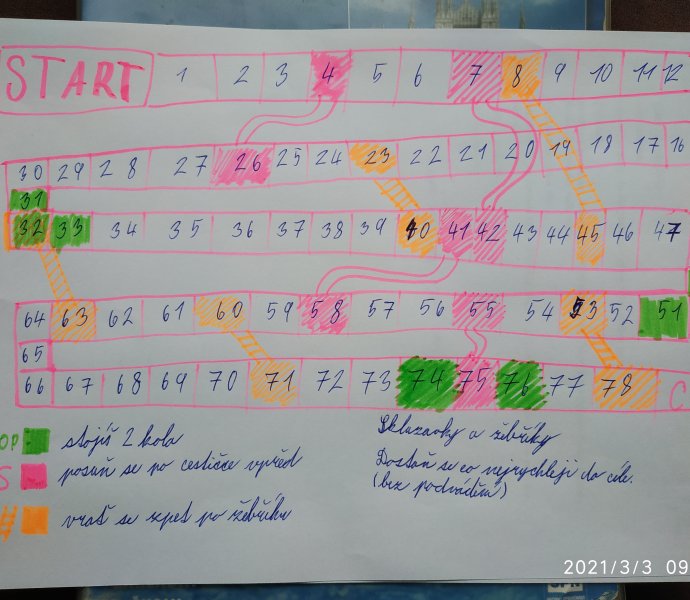 START 1 2 3 4 5 6 7 8 9 10 11 12
30 29 28 27 26 25 24 23 22 21 20 19 18 17 16
31
32 33 34 35 36 37 38 39 40 41 42 43 44 45 46 47
64 63 62 61 60 59 58 57 56 55 54 53 52 51
65
66 67 68 69 70 71 72 73 74 75 76 77 78 C
OP stojíš 2 kola
S posuň se po cestičce vpřed
vrať se zpet po žebříku
Skluzavky a žebříky
Dostaň se co nejrychleji do cíle.
(bez podvádění)
2021/3/3 09